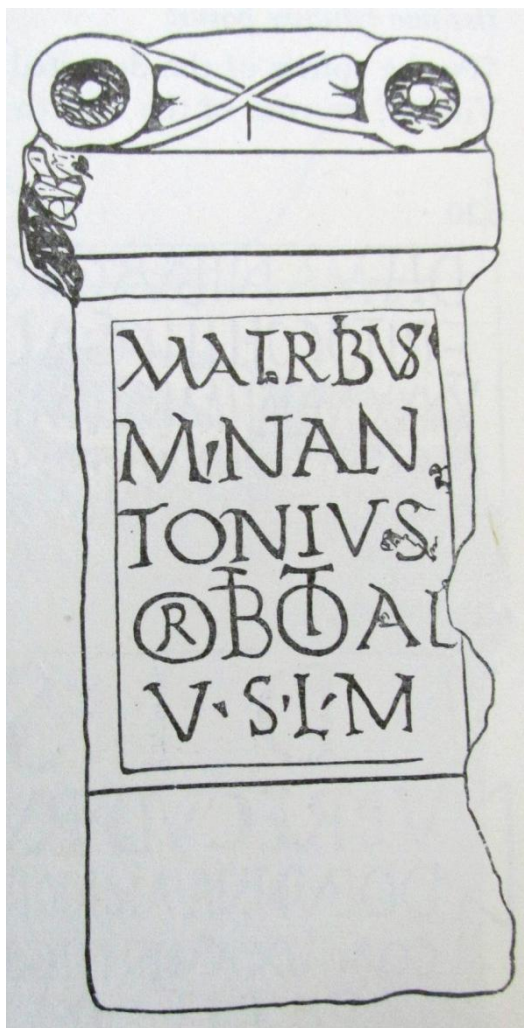 MATRIBVS
M · NAN
TONIVS
ORBIOTAL
V · S · L · M